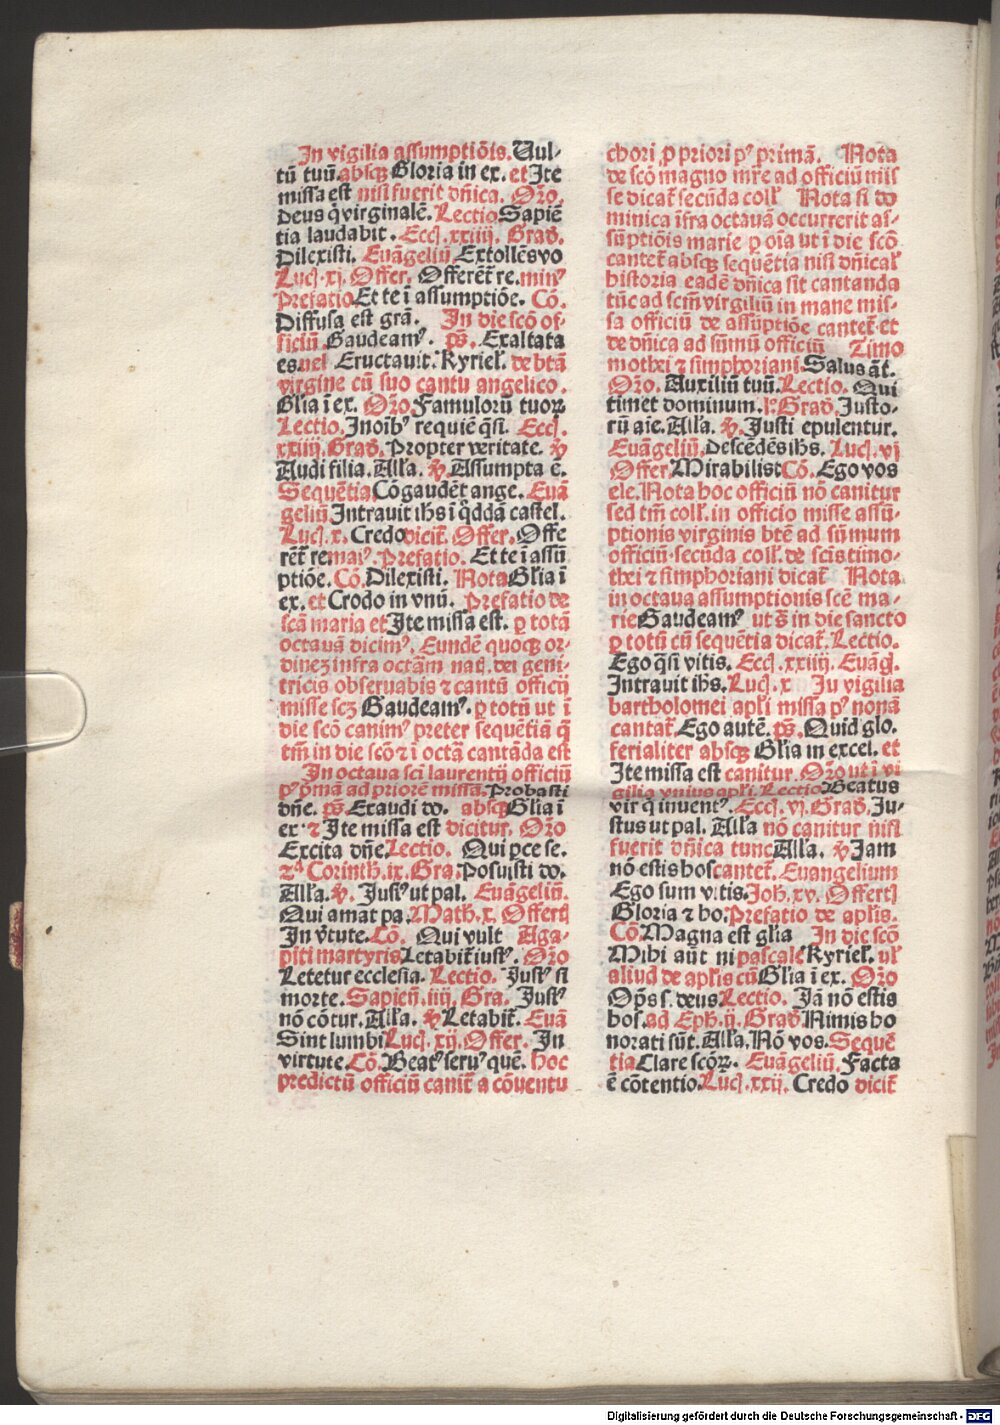 In vigilia assumptiōis. Uul-
tū tuū. absqȝ Gloria in ex. et Ite
missa est nisi fuerit dn̄ica. Orō.
Deus q̇ virginalē. Lectio Sapiē
tia laudabit. Eccl. xxiiij. Grad.
Dilexisti. Euāgeliū Extollēs vo
Luc. xj. Offer. Offerēt̄ re. minꝰ
Prefatio Et te ī assumptiōe. Cō.
Diffusa est grā. In die scō of-
ficiū Gaudeamꝰ. pͫs. Exaltata
es. uel Eructauit. Kyriel̄. de btā
virgine cū suo cantu angelico.
Glīa ī ex. Orō Famulorū tuoꝝ
Lectio. In oībꝰ requiē q̄si. Eccl.
xxiiij. Grad. Propter veritate. ℣
Audi filia. Alla. ℣. Assumpta ē.
Sequētia Cōgaudēt ange. Euā
geliū Intrauit ihs ī q̇ddā castel.
Luc. x. Credo dicit̄. Offer. Offe
rēt̄ re maiꝰ. Prefatio. Et te ī assū
ptiōe. Cō. Dilexisti. Nota Glīa ī
ex. et Crodo in vnū. Prefatio de
scā maria et Ite missa est. ꝑ totā
octauā dicimꝰ. Eundē quoqȝ or-
dinē infra octām nat̄. dei geni
tricis obseruabis ⁊ cantū officij
misse scȝ Gaudeamꝰ. ꝑ totū ut ī
die scō canimꝰ preter sequētiā q̄
tm̄ in die scō ⁊ ī octā cantāda est
In octaua sci laurentij officiū
pꝰ pmā ad priorē missā. Probasti
dn̄e. pͫs. Exaudi do. absqȝ Glīa ī
ex. ⁊ Ite missa est dicitur. Orō
Excita dn̄e. Lectio. Qui pce se.
2ͣ Corinth. ix. Gra. Posuisti do.
Alla. ℣. Justꝰ ut pal. Euāgeliū.
Qui amat pa. Math. x. Offert̄
In v̄tute. Cō. Qui vult Aga-
piti martyris Letabit̄ iustꝰ. Orō
Letetur ecclesia. Lectio. Justꝰ si
morte. Sapien̄. iiij. Gra. Justꝰ
nō cō tur. Alla. ℣ Letabit̄. Euā
Sint lumbi Luc. xij. Offer. In
virtute. Cō. Beatꝰ seruꝰ quē. Hoc
predictū officiū canit̄ a cōuentu
chori ꝓ priori pꝰ primā. Nota
de scō magno mr̄e ad officiū mis
se dicat̄ secūda coll̄ Nota si do
minica īfra octauā occurrerit as-
sūptiōis marie ꝑ oīa ut ī die scō
cantet̄ absqȝ sequētia nisi dn̄ical̄
historia eadē dn̄ica sit cantanda
tūc ad scm̄ virgiliū in mane mis-
sa officiū de assūptiōe cantet̄ et
de dn̄ica ad sūmū officiū Timo
mothei ⁊ simphoriani. Salus āt.
Orō. Auxiliū tuū. Lectio. Qui
timet dominum. Grad. Justo-
rū aīe. Alla. ℣. Justi epulentur.
Euāgeliū. Descēdēs ihs. Luc. vj
Offer. Mirabilis Cō. Ego vos
ele. Nota hoc officiū nō canitur
sed tm̄ coll̄. in officio misse assū-
ptionis virginis btē ad sūmum
officiū. secūda coll̄. de scīs timo-
thei ⁊ simphoriani dicat̄ Nota
in octaua assumptionis scē ma-
rie Gaudeamꝰ ut s̄ in die sancto
ꝑ totū cū sequētia dicat̄. Lectio.
Ego q̄si vitis. Eccl. xxiiij. Euāg.
Intrauit ihs. Luc. x In vigilia
bartholomei apl̄i missa pꝰ nonā
cantat̄ Ego autē. pͫs. Quid glo.
ferialiter absqȝ Glīa in excel. et
Ite missa est canitur. Orō ut ī vi
gilia vnius apl̄i. Lectio Beatus
vir q̇ inuentꝰ. Eccl. vj. Grad. Ju-
stus ut pal. Alla nō canitur nisi
fuerit dn̄ica tunc Alla. ℣ Jam
nō estis hos cantet̄. Euangelium
Ego sum vitis. Joh. xv. Offert̄
Gloria ⁊ ho. Prefatio de apl̄is.
Cō. Magna est glīa In die scō
Mihi aūt ni pascale Kyriel̄. ul̄
aliud de apl̄is cū Glīa ī ex. Orō
Op̄s s. deus Lectio. Jā nō estis
hos. ad Eph. ij. Grad. Nimis ho
norati sūt. Alla. Nō vos. Sequē
tia Clare scōꝝ. Euāgeliū. Facta
ē cōtentio. Luc. xxij. Credo dicit̄
Digitalisierung gefördert durch die Deutsche Forschungsgemeinschaft - DFG